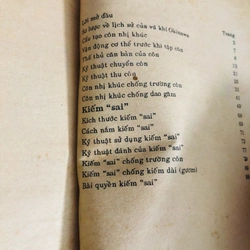 Trang
Lời mở đầu
Sơ lược về lịch sử của vũ khí Okinawa
Cấu tạo côn nhị khúc
Vận động cơ thể trước khi tập côn
Thế thủ căn bản của côn
Kỹ thuật chuyền côn
Kỹ thuật thu côn
Côn nhị khúc chống trường côn
Côn nhị khúc chống dao găm
Kiếm "sai"
Kích thước kiếm "sai"
Cách nắm kiếm "sai"
Kỹ thuật sử dụng kiếm "sai"
Kỹ thuật đánh của kiếm "sai"
Kiếm "sai" chống trường côn
Kiếm "sai" chống kiếm dài (gươm)
Bài quyền kiếm "sai"